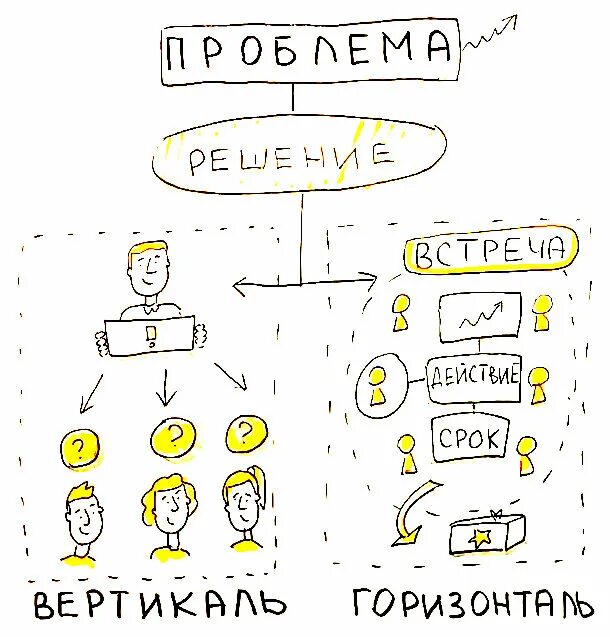 ПРОБЛЕМА
РЕШЕНИЕ
!
? ? ?
ВЕРТИКАЛЬ
ВСТРЕЧА
ДЕЙСТВИЕ
СРОК
ГОРИЗОНТАЛЬ